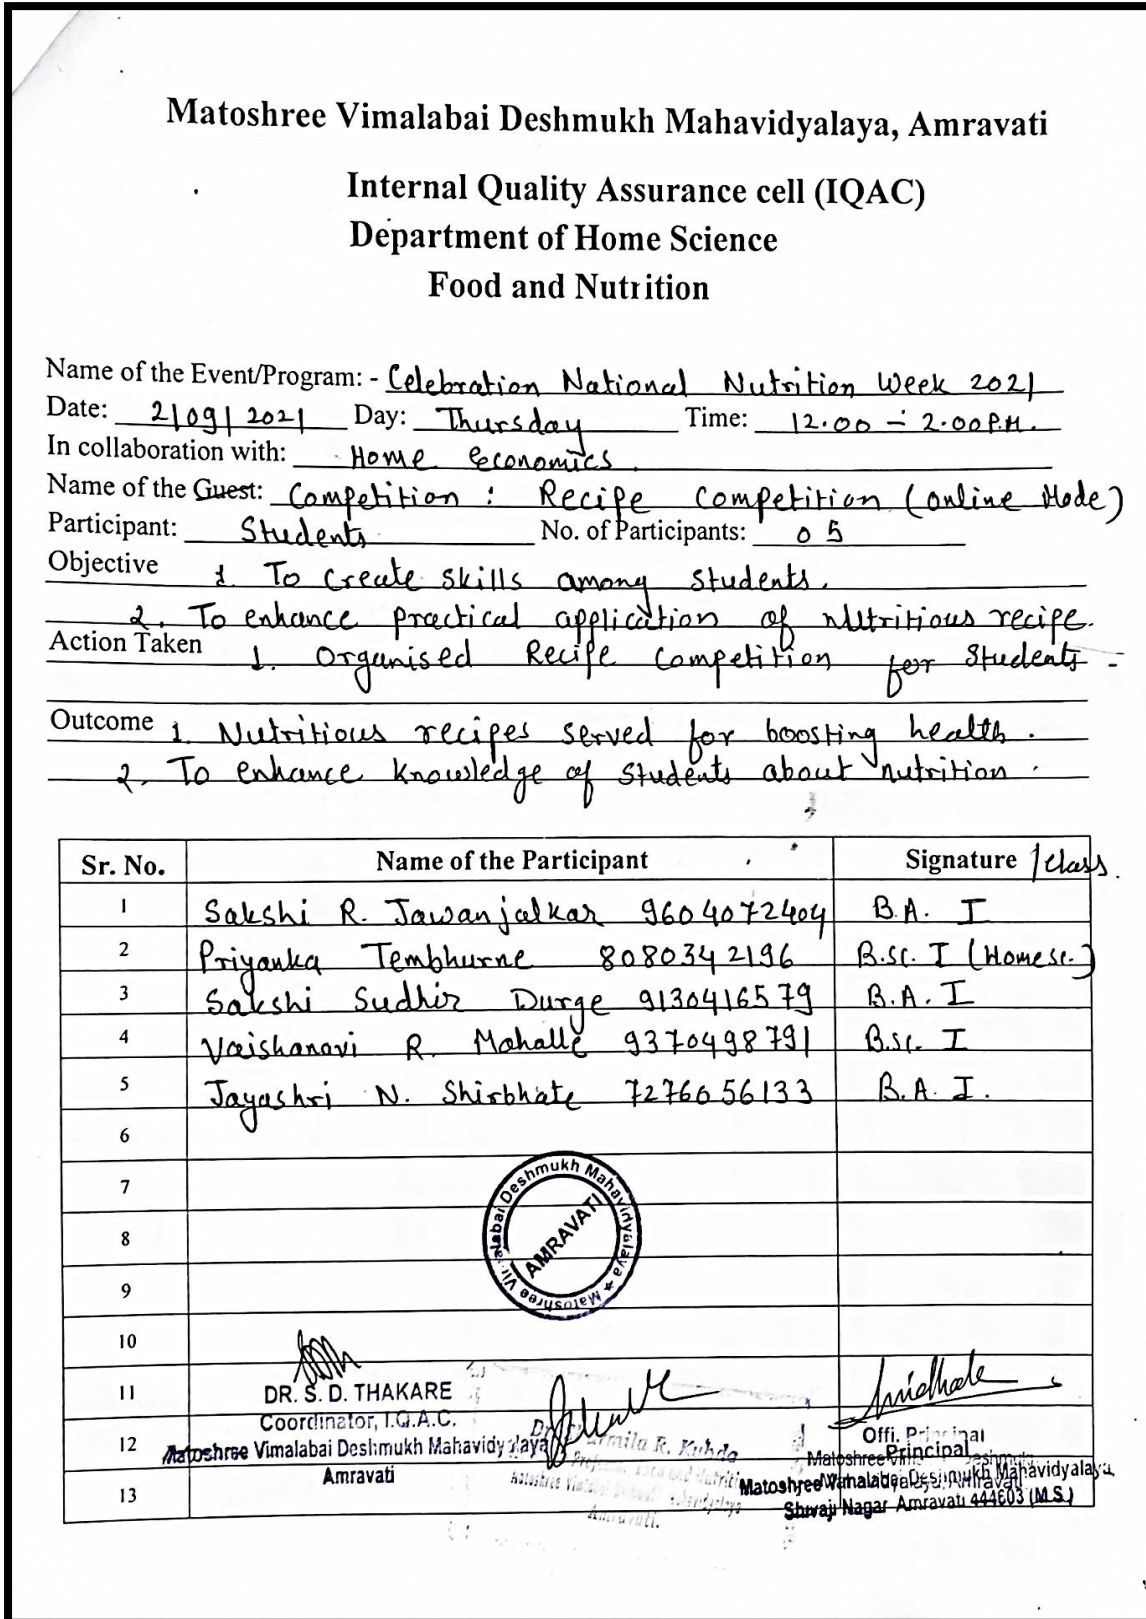 Matoshree Vimalabai Deshmukh Mahavidyalaya, Amravati
Internal Quality Assurance cell (IQAC)
Department of Home Science
Food and Nutrition
Name of the Event/Program: - Celebration National Nutrition Week 2021
Date: 2/09/2021 Day: Thursday Time: 12.00 - 2.00 P.M.
In collaboration with: Home Economics
Name of the Guest: Competition : Recipe Competition (Online Mode)
Participant: Students No. of Participants: 05
Objective 1. To Create Skills among Students.
2. To enhance practical application of Nutritious recipe.
Action Taken 1. Organised Recipe Competition for Students -
Outcome 1. Nutritious recipes served for boosting health.
2. To enhance knowledge of Students about nutrition.
Sr. No. Name of the Participant Signature /Class.
1 Sakshi R. Jawanjalkar 9604072404 B.A. I
2 Priyanka Tembhurne 8080342196 B.Sc. I (Homesc.)
3 Sakshi Sudhir Durge 9130416579 B.A. I
4 Vaishanavi R. Mahalle 9370498791 B.Sc. I
5 Jayashri N. Shirbhate 7276056133 B.A. I.
6
7
8
9
10
11
12
13
Matoshree Vimalabai Deshmukh Mahavidyalaya ★
AMRAVATI
DR. S. D. THAKARE
Coordinator, I.Q.A.C.
Matoshree Vimalabai Deshmukh Mahavidyalaya
Amravati
R. Kubde
Amravati.
Offi. Principal
Principal
Matoshree Vimalabai Deshmukh Mahavidyalaya,
Shivaji Nagar Amravati 444603 (M.S.)